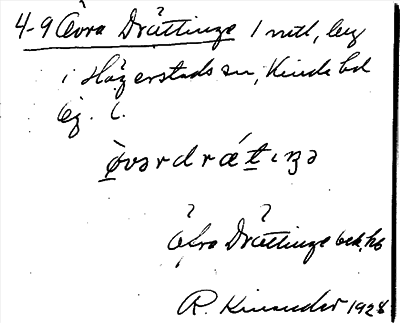 4-9 Övra Drättinge 1 mtl, beg
i Hägerstads sn, Kinda hd
Ög. l.
ò̱vərdrǽt̲ıŋə
Öfra Drättinge bek. hb
R. Kinander 1928